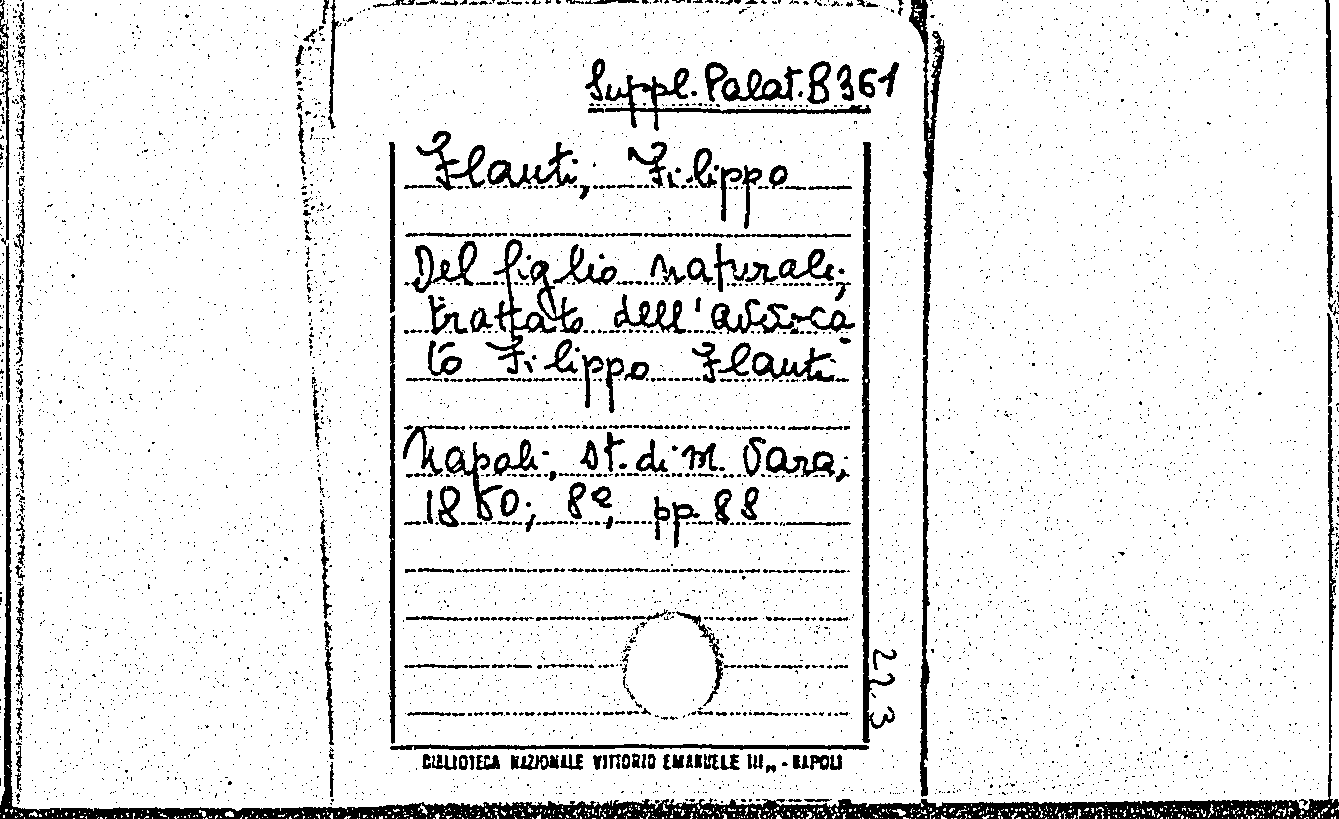 Suppl. Palat. B 361
Flauti, Filippo
Del figlio naturale;
trattato dell'avvoca
to Filippo Flauti
Napoli, st. di M. Vara,
1850; 8º, pp. 88
22.3
BIBLIOTECA NAZIONALE VITTORIO EMANUELE III,, - NAPOLI